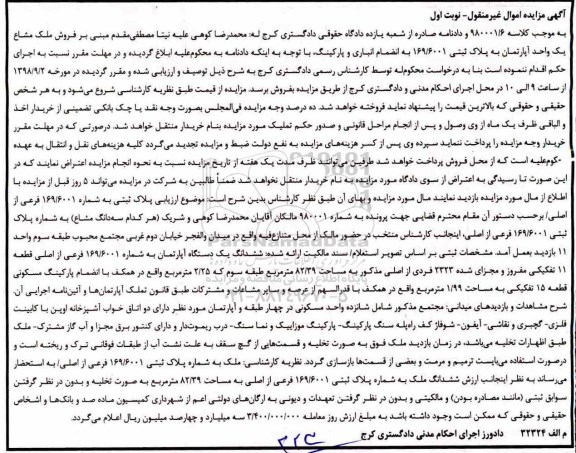 آگهی مزایده اموال غیرمنقول- نوبت اول
به موجب کلاسه ۹۸۰۰۰۱/۶ و دادنامه صادره از شعبه یازده دادگاه حقوقی دادگستری کرج له: محمدرضا کوهی علیه نیتا مصطفی‌مقدم مبنی بر فروش ملک مشاع
یک واحد آپارتمان به پلاک ثبتی ۱۶۹/۶۰۰۱ به انضمام انباری و پارکینگ، با توجه به اینکه دادنامه به محکوم‌علیه ابلاغ گردیده و در مهلت مقرر نسبت به اجرای
حکم اقدام ننموده است بنا به درخواست محکوم‌له توسط کارشناس رسمی دادگستری کرج به شرح ذیل توصیف و ارزیابی شده و مقرر گردیده در مورخه ۱۳۹۸/۹/۲
از ساعت ۹ الی ۱۰ در محل اجرای احکام مدنی و دادگستری کرج از طریق مزایده بفروش برسد. مزایده از قیمت طبق نظریه کارشناسی شروع می‌شود و به هر شخص
حقیقی و حقوقی که بالاترین قیمت را پیشنهاد نماید فروخته خواهد شد. ده درصد وجه مزایده فی‌المجلس بصورت وجه نقد یا چک بانکی تضمینی از خریدار اخذ
و الباقی ظرف یک ماه از وی وصول و پس از انجام مراحل قانونی و صدور حکم تملیک مورد مزایده بنام خریدار منتقل خواهد شد. درصورتی که در مهلت مقرر
خریدار وجه مزایده را پرداخت ننماید سپرده وی پس از کسر هزینه‌های مزایده به نفع دولت ضبط و مزایده تجدید می‌گردد کلیه هزینه‌های نقل و انتقال به عهده
محکوم‌علیه است که از محل فروش پرداخت خواهد شد طرفین می‌توانند ظرف مدت یک هفته از تاریخ مزایده نسبت به نحوه انجام مزایده اعتراض نمایند که در
این صورت تا رسیدگی به اعتراض از سوی دادگاه مورد مزایده به نام خریدار منتقل نخواهد شد ضمناً طالبین به شرکت در مزایده می‌توانند ۵ روز قبل از مزایده با
اطلاع از مال مورد مزایده بازدید نمایند مال مورد مزایده و بهای آن طبق نظر کارشناس بدین شرح است: موضوع ارزیابی پلاک ثبتی به شماره ۱۶۹/۶۰۰۱ فرعی از
اصلی/ برحسب دستور آن مقام محترم قضایی جهت پرونده به شماره ۹۸۰۰۰۱ مالکان آقایان محمدرضا کوهی و شریک (هر کدام سه‌دانگ مشاع) به شماره پلاک
ثبتی ۱۶۹/۶۰۰۱ فرعی از اصلی، اینجانب کارشناس منتخب در حضور مالک از محل متنازع‌فیه واقع در میدان والفجر خیابان دوم غربی مجتمع محبوب طبقه سوم واحد
۱۱ بازدید بعمل آمد. مشخصات ثبتی بر اساس تصویر استعلام/ سند مالکیت ارائه شده: ششدانگ یک دستگاه آپارتمان به شماره ۱۶۹/۶۰۰۱ فرعی از اصلی قطعه
۱۱ تفکیکی مفروز و مجزای شده ۲۳۲۳ فردی از اصلی مذکور به مساحت ۸۲/۳۹ مترمربع طبقه سوم که ۲/۲۵ مترمربع واقع در همکف با انضمام پارکینگ مسکونی
قطعه ۱۵ تفکیکی به مساحت ۱/۹۹ مترمربع واقع در همکف با قدرالسهم از عرصه و سایر مشاعات و مشترکات طبق قانون تملک آپارتمان‌ها و آئین‌نامه اجرایی آن.
شرح مشاهدات و بازدیدهای میدانی: مجتمع مذکور شامل شانزده واحد مسکونی در چهار طبقه و آپارتمان مورد نظر دارای دو اتاق خواب آشپزخانه اوپن با کابینت
فلزی- گچبری و نقاشی- آیفون- شوفاژ کف راه‌پله سنگ پارکینگ- پارکینگ موزاییک و نما سنگ- درب ریموت‌دار و دارای کنتور برق مجزا و آب گاز مشترک- ملک
طبق اظهارات تخلیه می‌باشد، در زمان بازدید ملک فوق به صورت تخلیه و قسمت‌هایی از گچ سقف به علت نشت آب از طبقات فوقانی ترک و ریخته است و
درصورت استفاده می‌بایست ترمیم و مرمت و بعضی از قسمت‌ها بازسازی گردد. نظریه کارشناسی: ملک به شماره پلاک ثبتی ۱۶۹/۶۰۰۱ فرعی از اصلی/ به استحضار
می‌رساند به نظر اینجانب ارزش ششدانگ ملک به شماره پلاک ثبتی ۱۶۹/۶۰۰۱ فرعی از اصلی به مساحت ۸۲/۳۹ مترمربع به صورت تخلیه و بدون در نظر گرفتن
سوابق ثبتی (مانند مصادره بودن) و مالکیتی و بدون در نظر گرفتن تعهدات و دیونی به ارگان‌های دولتی اعم از شهرداری کمیسیون ماده صد و بانک‌ها و اشخاص
حقیقی و حقوقی که ممکن است وجود داشته باشد به مبلغ ارزش روز معامله ۳/۴۰۰/۰۰۰/۰۰۰ سه میلیارد و چهارصد میلیون ریال اعلام می‌گردد.
م الف ۳۲۳۲۴ دادورز اجرای احکام مدنی دادگستری کرج